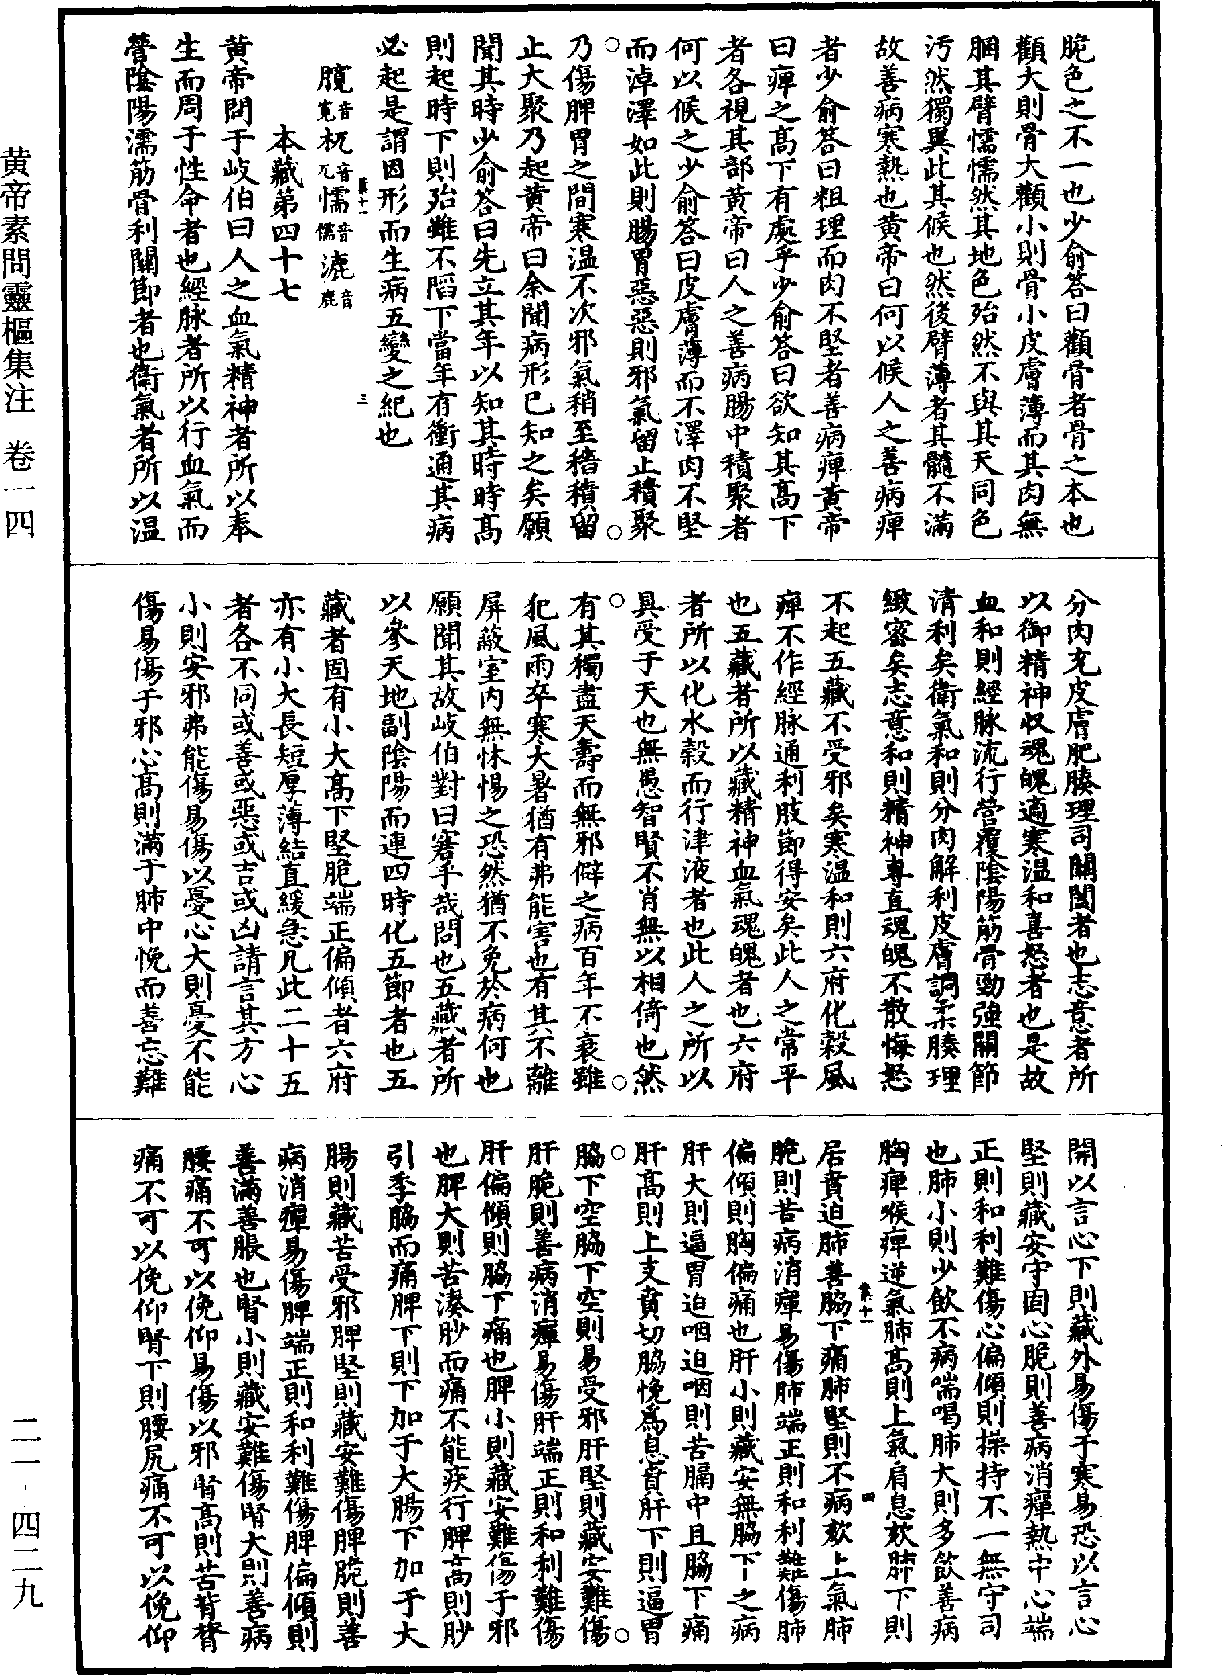 脆色之不一也少俞答曰顴骨者骨之本也
顴大則骨大顴小則骨小皮膚薄而其肉無
䐃其臂懦懦然其地色殆然不與其天同色
污然獨異此其候也然後臂薄者其髓不滿
故善病寒熱也黃帝曰何以候人之善病痺
者少俞答曰粗理而肉不堅者善病痺黃帝
曰痺之高下有處乎少俞答曰欲知其高下
者各視其部黃帝曰人之善病腸中積聚者
何以候之少俞答曰皮膚薄而不澤肉不堅
而淖澤如此則腸胃惡惡則邪氣留止積聚
乃傷脾胃之間寒溫不次邪氣稍至穡積留
止大聚乃起黃帝曰余聞病形已知之矣願
聞其時少俞答曰先立其年以知其時時高
則起時下則殆雖不陷下當年有衝通其病
必起是謂因形而生病五變之紀也
臗音寬杌音兀懦音儒漉音鹿
本藏第四十七
黃帝問于岐伯曰人之血氣精神者所以奉
生而周于性命者也經脉者所以行血氣而
營陰陽濡筋骨利關節者也衛氣者所以溫
分肉充皮膚肥腠理司關闔者也志意者所
以御精神收魂魄適寒溫和喜怒者也是故
血和則經脉流行營覆陰陽筋骨勁強關節
清利矣衛氣和則分肉解利皮膚調柔腠理
緻密矣志意和則精神專直魂魄不散悔怒
不起五藏不受邪矣寒溫和則六府化穀風
痺不作經脉通利肢節得安矣此人之常平
也五藏者所以藏精神血氣魂魄者也六府
者所以化水穀而行津液者也此人之所以
具受于天也無愚智賢不肖無以相倚也然
有其獨盡天壽而無邪僻之病百年不衰雖
犯風雨卒寒大暑猶有弗能害也有其不離
屏蔽室內無怵惕之恐然猶不免於病何也
願聞其故岐伯對曰窘乎哉問也五藏者所
以參天地副陰陽而連四時化五節者也五
藏者固有小大高下堅脆端正偏傾者六府
亦有小大長短厚薄結直緩急凡此二十五
者各不同或善或惡或吉或凶請言其方心
小則安邪弗能傷易傷以憂心大則憂不能
傷易傷于邪心高則滿于肺中悗而善忘難
開以言心下則藏外易傷于寒易恐以言心
堅則藏安守固心脆則善病消癉熱中心端
正則和利難傷心偏傾則操持不一無守司
也肺小則少飲不病喘喝肺大則多飲善病
胸痺喉痺逆氣肺高則上氣肩息欬肺下則
居賁迫肺善脇下痛肺堅則不病欬上氣肺
脆則苦病消癉易傷肺端正則和利難傷肺
偏傾則胸偏痛也肝小則藏安無脇下之病
肝大則逼胃迫咽迫咽則苦膈中且脇下痛
肝高則上支賁切脇悗為息賁肝下則逼胃
脇下空脇下空則易受邪肝堅則藏安難傷
肝脆則善病消癉易傷肝端正則和利難傷
肝偏傾則脇下痛也脾小則藏安難傷于邪
也脾大則苦湊䏚而痛不能疾行脾高則䏚
引季脇而痛脾下則下加于大腸下加于大
腸則藏苦受邪脾堅則藏安難傷脾脆則善
病消癉易傷脾端正則和利難傷脾偏傾則
善滿善脹也腎小則藏安難傷腎大則善病
腰痛不可以俛仰易傷以邪腎高則苦背膂
痛不可以俛仰腎下則腰尻痛不可以俛仰
黃帝素問靈樞集注 卷一四
二一·四二九